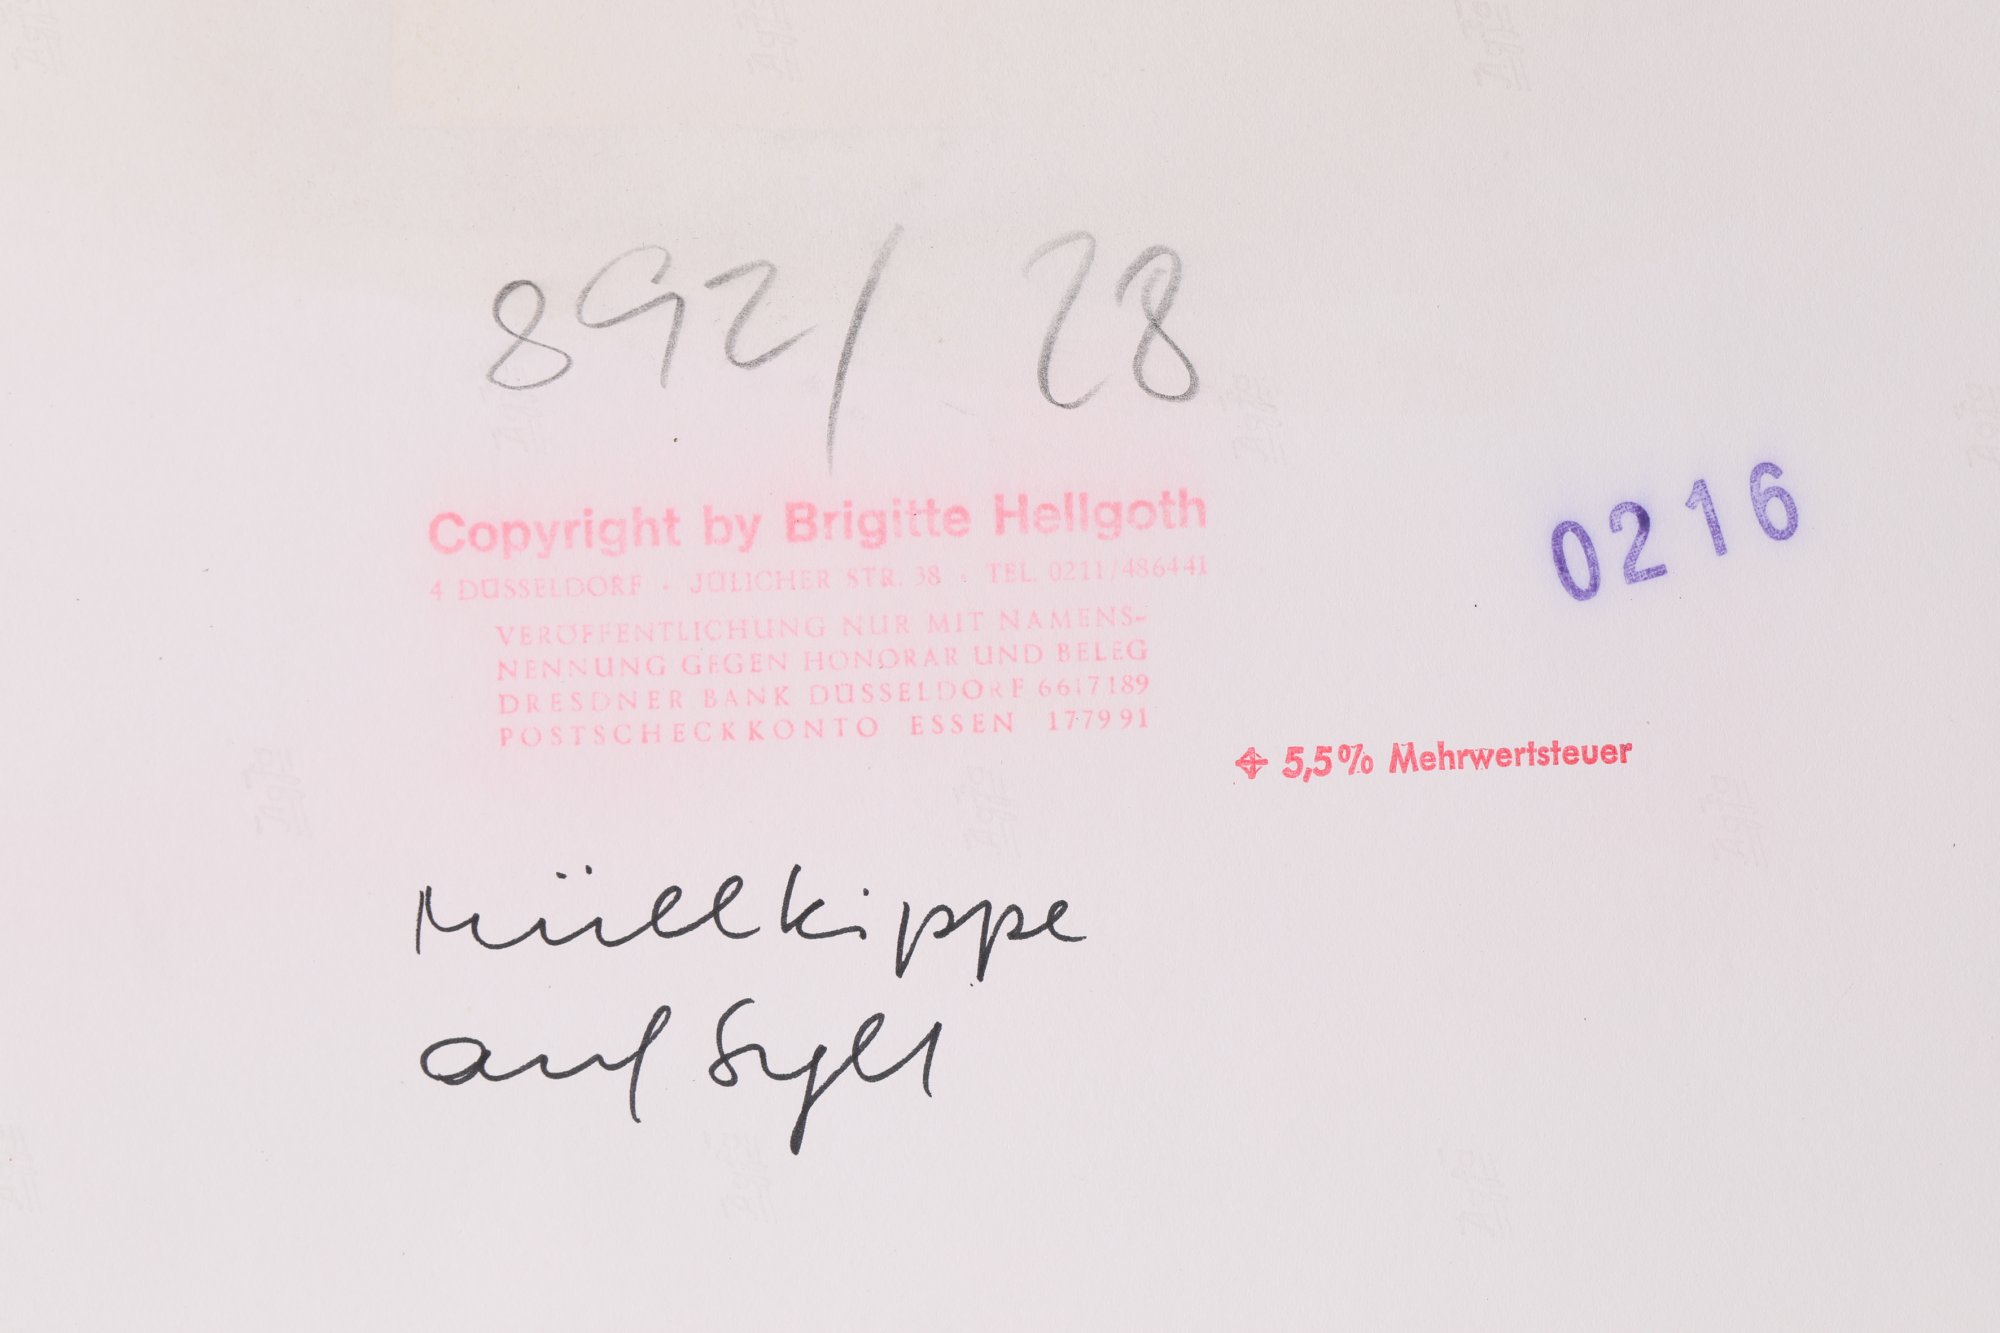 892/ 28
Copyright by Brigitte Hellgoth
4 DÜSSELDORF · JÜLICHER STR. 38 · TEL. 0211/486441
VERÖFFENTLICHUNG NUR MIT NAMENS-
NENNUNG GEGEN HONORAR UND BELEG
DRESDNER BANK DÜSSELDORF 6617189
POSTSCHECKKONTO ESSEN 177991
0216
+ 5,5% Mehrwertsteuer
Müllkippe
auf Sylt